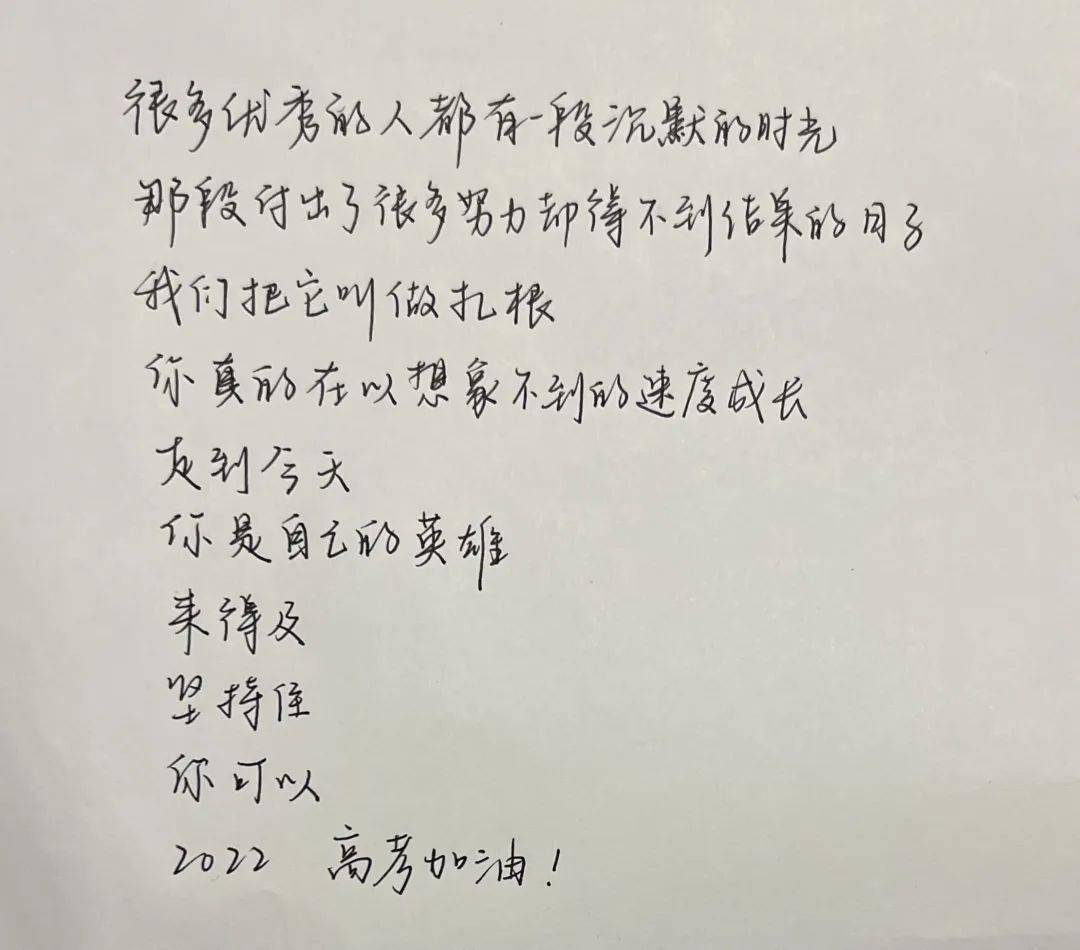 很多优秀的人都有一段沉默的时光
那段付出了很多努力却得不到结果的日子
我们把它叫做扎根
你真的在以想象不到的速度成长
走到今天
你是自己的英雄
来得及
坚持住
你可以
2022 高考加油！